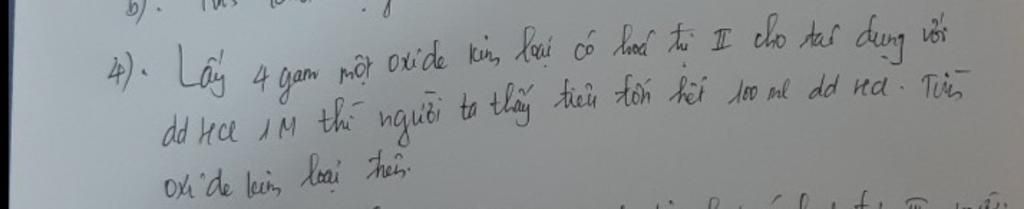 4). Lấy 4 gam một oxide kim loại có hoá trị II cho tác dụng với
dd HCl 1M thì người ta thấy tiêu tốn hết 100 ml dd HCl. Tìm
oxide kim loại trên.